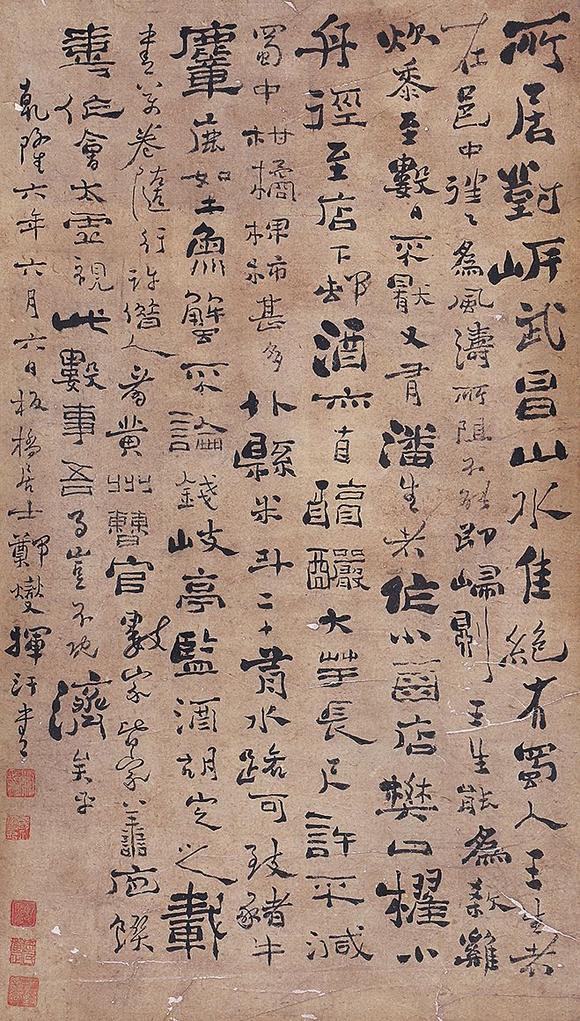 所居對岸武昌山水佳絶有蜀人王生者
在邑中往〻爲風濤所阻不能即歸則王生能爲殺雞
炊黍至數日不厭又有潘生者作小酒店樊口櫂小
舟徑至店下邨酒亦自醇釅大芋長尺許不減
蜀中柑橘椑柿甚多外縣米斗二十有水路可致豬牛
麞鹿如土魚蟹不論錢岐亭監酒胡定之載
書萬卷隨行許借人看黃州曹官數家皆家〻善庖饌
喜作會太虛視此數事吾事豈不既濟矣乎
乾隆六年六月六日板橋居士鄭燮揮汗書